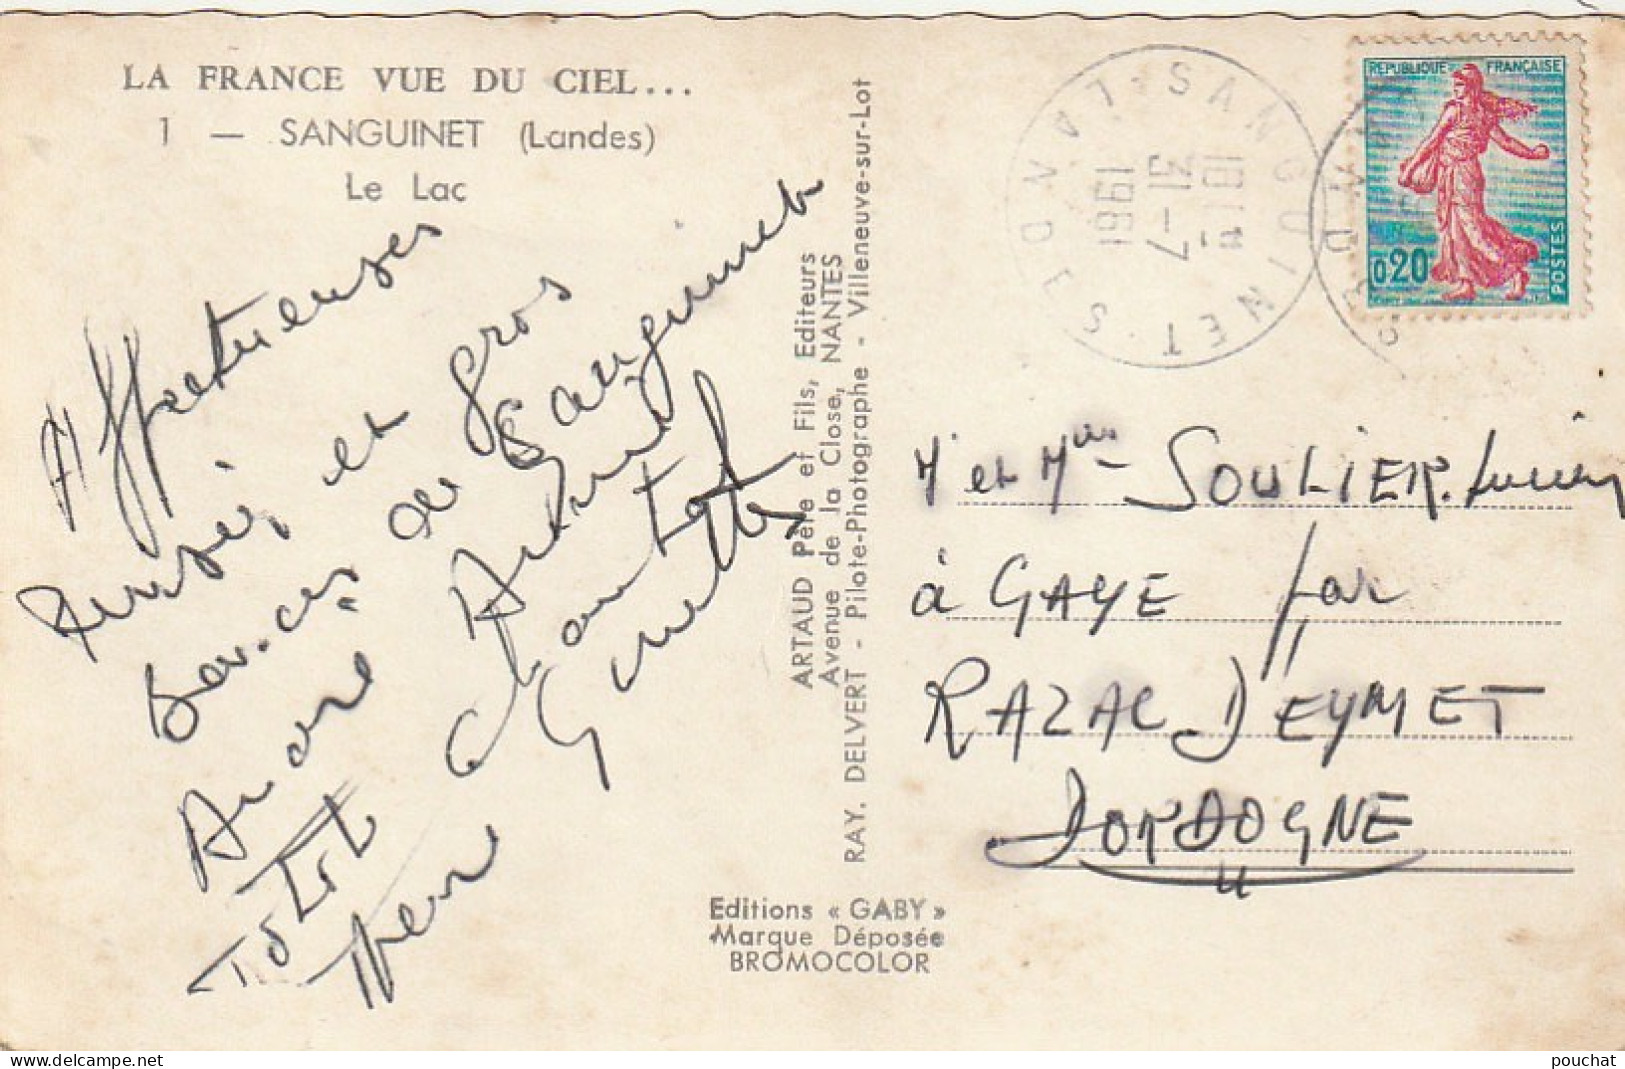 LA FRANCE VUE DU CIEL...
1 — SANGUINET (Landes)
Le Lac
Affectueuses
pensées et gros
baisers de Sanguinet
André
Totot
Pierre
Ginette
ARTAUD Père et Fils, Editeurs
Avenue de la Close, NANTES
RAY. DELVERT - Pilote-Photographe - Villeneuve-sur-Lot
Editions « GABY »
Marque Déposée
BROMOCOLOR
SANGUINET
LANDES
18H
31-7
1961
REPUBLIQUE FRANÇAISE
0,20
POSTES
M et Mme SOULIER Lucien
à GAYE par
RAZAC D'EYMET
DORDOGNE
www.delcampe.net
pouchat